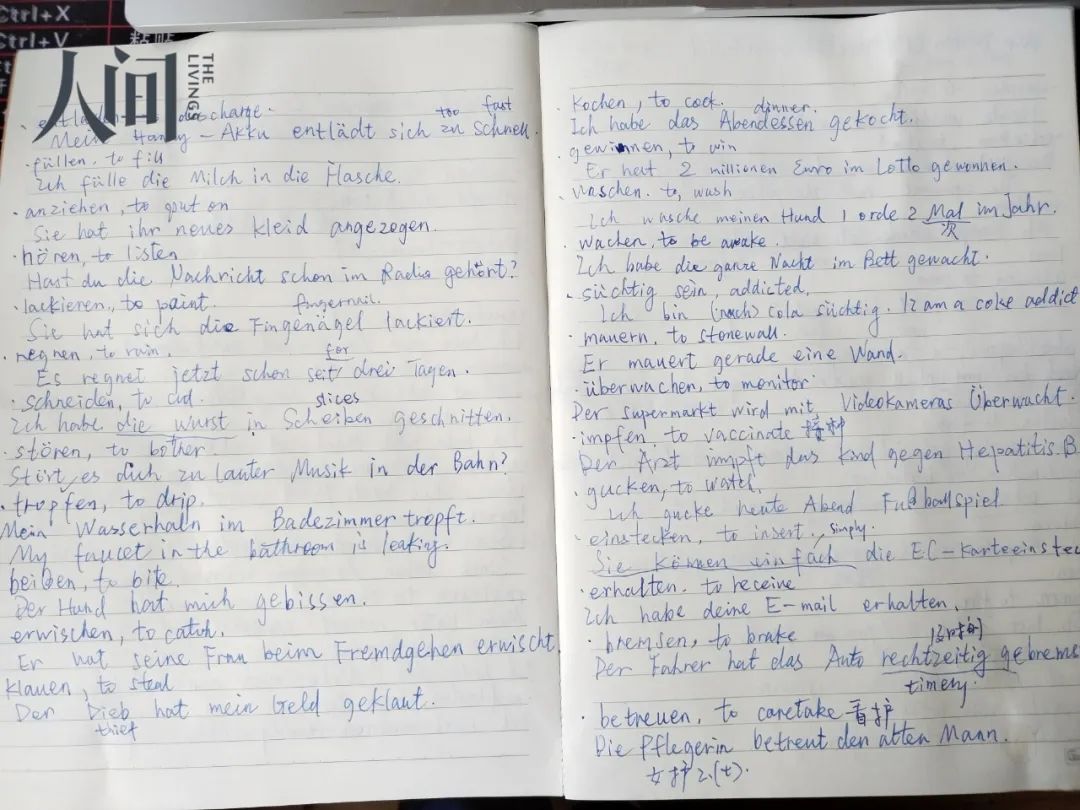 Ctrl+X
Ctrl+V 粘贴
人间 THE LIVINGS
discharge.
too fast
Mein Handy - Akku entlädt sich zu schnell.
· füllen, to fill
Ich fülle die Milch in die Flasche.
· anziehen, to put on
Sie hat ihr neues kleid angezogen.
· hören, to listen
Hast du die Nachricht schon im Radio gehört?
· lackieren, to paint.
fingernail.
Sie hat sich die Fingenägel lackiert.
· regnen, to rain.
for
Es regnet jetzt schon seit drei Tagen.
· schneiden, to cut.
slices
Ich habe die wurst in Scheiben geschnitten.
· stören, to bother.
Stört es dich zu lauter Musik in der Bahn?
· tropfen, to drip.
Mein Wasserhahn im Badezimmer tropft.
My faucet in the bathroom is leaking.
beißen, to bite.
Der Hund hat mich gebissen.
erwischen, to catch.
Er hat seine Frau beim Fremdgehen erwischt
klauen, to steal
Der Dieb hat mein Geld geklaut.
thief
· kochen, to cock.
dinner.
Ich habe das Abendessen gekocht.
· gewinnen, to win
Er hat 2 millionen Euro im Lotto gewonnen.
waschen. to, wash
Ich wasche meinen Hund 1 orde 2 Mal im Jahr.
次
· wachen, to be awake.
Ich habe die ganze Nacht im Bett gewacht.
· süchtig sein, addicted.
Ich bin (nach) cola süchtig. I am a coke addict
· mauern, to stonewall.
Er mauert gerade eine Wand.
· überwachen, to monitor
Der supermarkt wird mit Videokameras Überwacht.
· impfen, to vaccinate 接种
Der Arzt impft das kind gegen Hepatitis.B
· gucken, to watch.
Ich gucke heute Abend Fußballspiel
· einstecken, to insert. simply.
Sie können einfach die EC-Karte einste
· erhalten. to receine
Ich habe deine E-mail erhalten.
· bremsen, to brake
及时的
Der Fahrer hat das Auto rechtzeitig gebrems
timely.
· betreuen, to caretake 看护
Die Pflegerin betreut den alten Mann.
女护工(士).